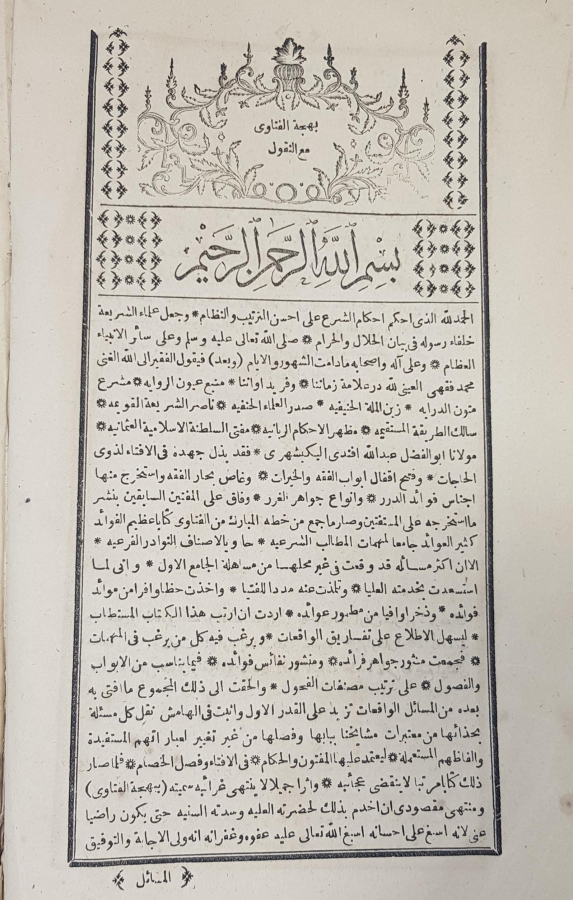 بهجة الفتاوى
مع النقول
بسم الله الرحمن الرحيم
الحمد لله الذى احكم احكام الشرع على احسن الترتيب والنظام * وجعل علماء الشريعة
خلفاء رسوله فى بيان الحلال والحرام * صلى الله تعالى عليه وسلم وعلى سائر الانبياء
العظام * وعلى آله واصحابه مادامت الشهور والايام (وبعد) فيقول الفقير الى الله الغنى
محمد فقهى العينى لله در علامة زماننا * وفريد اواننا * منبع عيون الروايه * مشرع
متون الدرايه * زين الملة الحنيفيه * صدر العلماء الحنفيه * ناصر الشريعة القويمه *
سالك الطريقة المستقيمه * مظهر الاحكام الربانيه * مفتى السلطنة الاسلامية العثمانيه *
مولانا ابو الفضل عبدالله افندى اليكيشهرى * فقد بذل جهده فى الافتاء لذوى
الحاجات * وفتح اقفال ابواب الفقه والخيرات * وغاص بحار الفقه واستخرج منها
اجناس فوائد الدرر * وانواع جواهر الغرر * وفاق على المفتين السابقين بنشر
ما استخرجه على المستفتين وصار ما جمع من خطه المبارك من الفتاوى كتابا عظيم الفوائد
كثير العوائد جامعا لمهمات المطالب الشرعيه * حاويا لاصناف النوادر الفرعيه *
الا ان اكثر مسائله قد وقعت فى غير محلها من مساهلة الجامع الاول * وانى لما
استسعدت بخدمته العليا * وتلمذت عنه مددا للفتيا * واخذت حظا وافرا من موائد
فوائده * وذخرا وافيا من عوائده * اردت ان ارتب هذا الكتاب المستطاب
* ليسهل الاطلاع على تفاريق الواقعات * ويرغب فيه كل من يرغب فى المهمات
* فجمعت منثور جواهر فرائده * ومنشور نفائس فوائده * فيما يناسب من الابواب
والفصول * على ترتيب مصنفات الفحول * والحقت الى ذلك المجموع ما افتى به
بعده من المسائل الواقعات تزيد على القدر الاول واثبت فى الهامش نقل كل مسئلة
بحذائها من معتبرات مشايخنا ببابها وفصلها من غير تغيير لعباراتهم المستفيدة
والفاظهم المستعملة * ليعتمد عليها المفتون والحكام * فى الافتاء وفصل الخصام * فلما صار
ذلك كتابا مرتبا لا ينقضى عجائبه * واثرا جميلا لا ينتهى غرائبه سميته (بهجة الفتاوى)
ومنتهى مقصودى ان اخدم بذلك لحضرته العليه وسدته السنيه حتى يكون راضيا
عنى لانه اسبغ على احسانه اسبغ الله تعالى عليه عفوه وغفرانه انه ولى الاجابة والتوفيق
المسائل